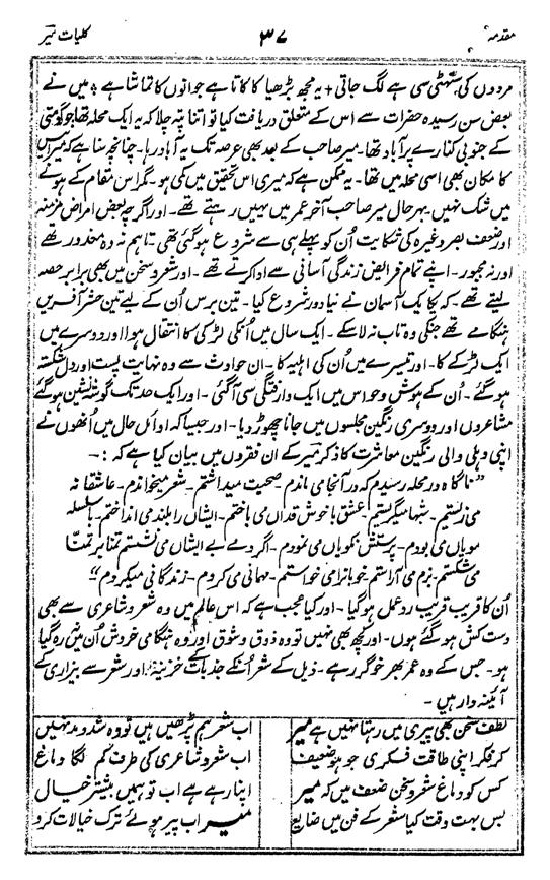 مقدمہ ۳۷ کلیات میر
مردوں کی سٹھنی سی ہے لگ جاتی + یہ مجھ بڑھیا کا کاتا ہے جوانوں کا تماشا ہے + میں نے
بعض سن رسیدہ حضرات سے اس کے متعلق دریافت کیا تو اتنا پتہ چلا کہ یہ ایک محلہ تھا جو گومتی
کے جنوبی کنارے پر آباد تھا۔ میر صاحب کے بعد بھی عرصہ تک یہ آباد رہا۔ چنانچہ سنا ہے کہ میر انیس
کا مکان بھی اسی محلہ میں تھا۔ یہ ممکن ہے کہ میری اس تحقیق میں کمی ہو۔ مگر اس مقام کے ہونے
میں شک نہیں۔ بہر حال میر صاحب آخر عمر میں یہیں رہتے تھے۔ اور اگرچہ بعض امراض مزمنہ
اور ضعف بصر وغیرہ کی شکایت اُن کو پہلے ہی سے شروع ہو گئی تھی تاہم نہ وہ معذور تھے
اور نہ مجبور۔ اپنے تمام فرائض زندگی آسانی سے ادا کرتے تھے۔ اور شعر و سخن میں بھی برابر حصہ
لیتے تھے۔ کہ یکایک آسمان نے نیا دور شروع کیا۔ تین برس اُن کے لیے تین حشر آفریں
ہنگامے تھے جنکی وہ تاب نہ لاسکے۔ ایک سال میں اُنکی لڑکی کا انتقال ہوا اور دوسرے میں
ایک لڑکے کا۔ اور تیسرے میں اُن کی اہلیہ کا۔ ان حوادث سے وہ نہایت پست اور دل شکستہ
ہو گئے۔ اُن کے ہوش و حواس میں ایک وارفتگی سی آگئی۔ اور ایک حد تک گوشہ نشین ہو گئے
مشاعروں اور دوسری رنگین مجلسوں میں جانا چھوڑ دیا۔ اور جیسا کہ اوائل حال میں اُنھوں نے
اپنی دہلی والی رنگین معاشرت کا ذکر میر کے ان فقروں میں بیان کیا ہے کہ :۔
"ناگاہ در محلہ رسیدم کہ در آنجا می ماندم۔ صحبت میداشتم۔ شعر میخواندم۔ عاشقانہ
می زیستم۔ شبہا میگریستم۔ عشق با خوش قداں می باختم۔ ایشاں را بلند می انداختم۔ با سلسلہ
مویاں می بودم۔ پرستش نکویاں می نمودم۔ اگر دمے بے ایشاں می نشستم تمنا بر تمنا
می شکستم۔ بزم می آراستم خوباں را می خواستم۔ مہمانی می کردم۔ زندگانی میکردم"
اُن کا قریب قریب رد عمل ہو گیا۔ اور کیا عجب ہے کہ اس عالم میں وہ شعر و شاعری سے بھی
دست کش ہو گئے ہوں۔ اور کچھ بھی نہیں تو وہ ذوق و شوق اور وہ ہنگامی خروش اُن میں نہ رہ گیا
ہو۔ جس کے وہ عمر بھر خوگر رہے۔ ذیل کے شعر اُنکے جذبات کے حزینہ اور شعر سے بیزاری کے
آئینہ دار ہیں۔
لطف سخن بھی پیری میں رہتا نہیں ہے میر اب شعر ہم پڑھیں ہیں تو وہ شد و مد نہیں
کر فکر اپنی طاقت فکری جو ہو ضعیف اب شعر و شاعری کی طرف کم لگا دماغ
کس کو دماغ شعر و سخن ضعف میں کہ میر اپنا رہے ہے اب تو ہمیں بیشتر خیال
بس بہت وقت کیا شعر کے فن میں ضایع میر اب پیر ہوئے ترک خیالات کرو